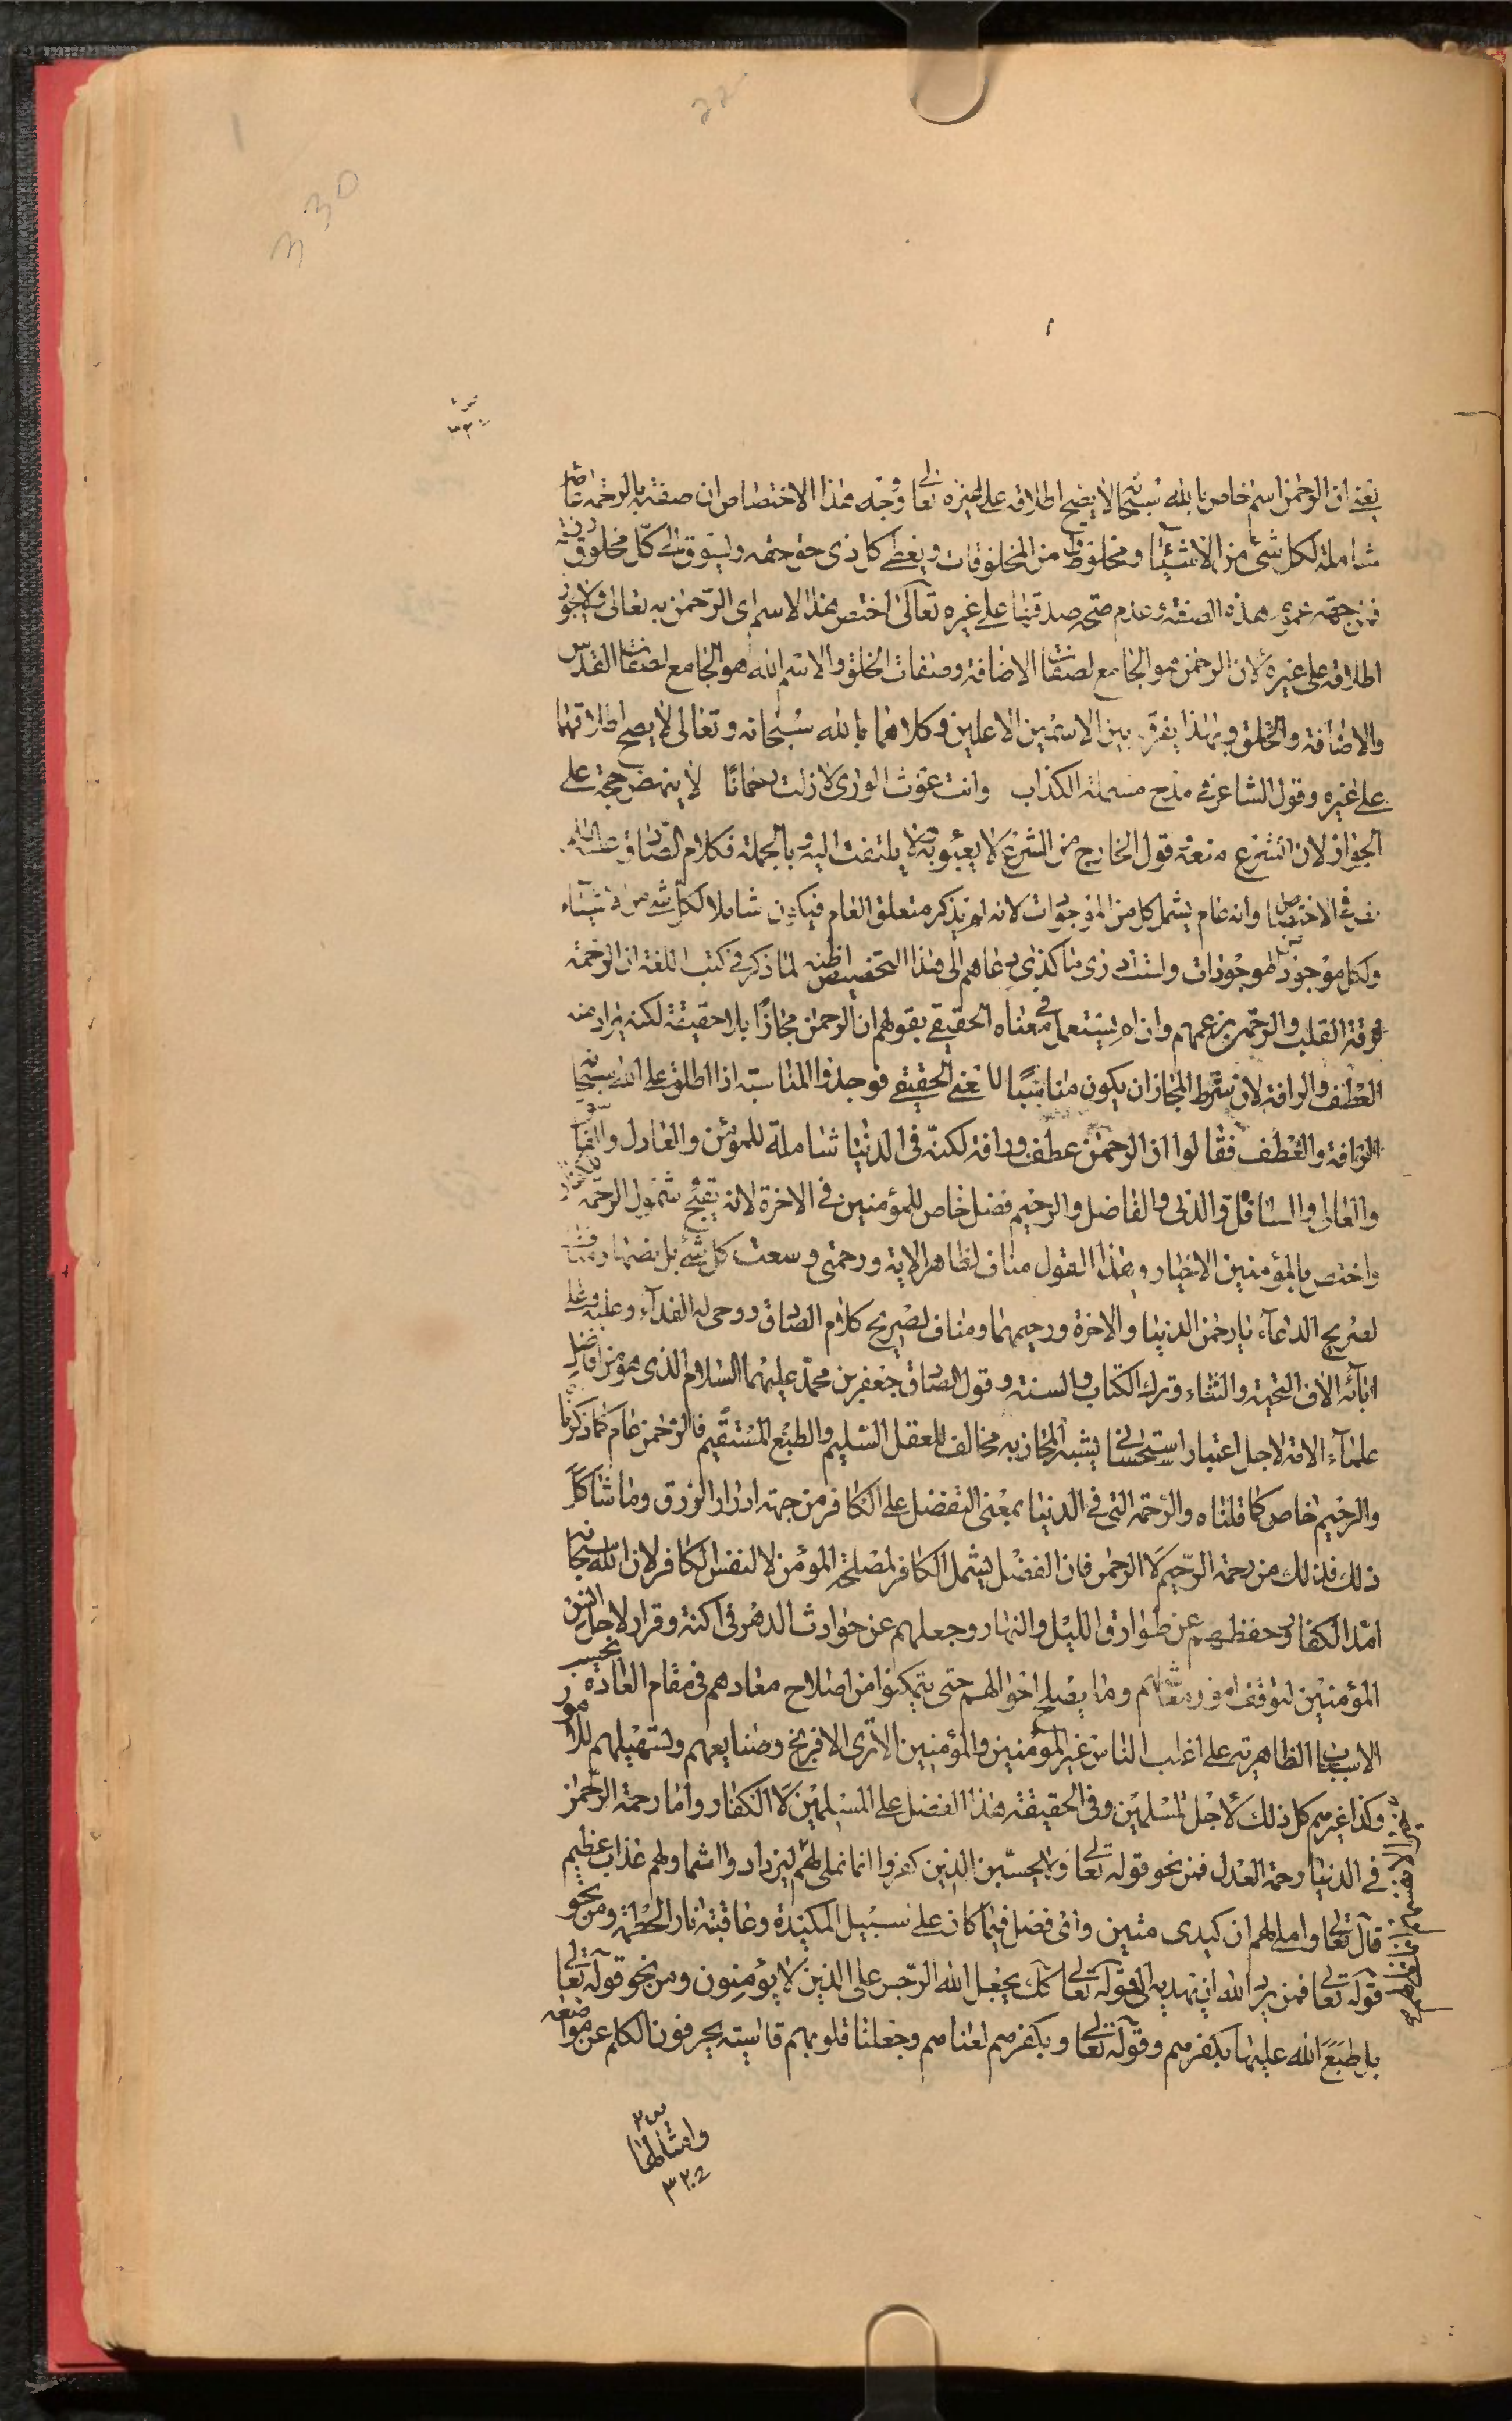 يعني ان الرحمن اسم خاص بالله سبحانه لا يصح اطلاقه على غيره تعالى ووجه هذا الاختصاص ان صفة بالرحمة عامة
شاملة لكل شئ من الاشياء ومخلوق من المخلوقات ويعطي كل ذي حق حقه ويسوق الى كل مخلوق رزقه
فمن جهة عموم هذه الصفة وعدم صحة صدقها على غيره تعالى اختص هذا الاسم اي الرحمن به تعالى ولا يجوز
اطلاقه على غيره لان الرحمن هو الجامع لصفات الاضافة وصفات الخلق والاسم الله هو الجامع لصفات القدس
والاضافة والخلق وبهذا يفرق بين الاسمين الاعلين وكلاهما بالله سبحانه وتعالى لا يصح اطلاقهما
على غيره وقول الشاعر في مدح مسيلمة الكذاب وانت غوث الورى لا زلت رحمانا لا ينهض حجة على
الجواز لان الشرع منعه قول الخارج من الشرع لا يعبؤ به ولا يلتفت اليه وبالجملة فكلام الصادق عليه السلم
في الاختصاص وانه عام يشمل كل من الموجودات لانه لم يذكر متعلق العام فيكون شاملا لكل شئ من الاشياء
ولكل موجود من الموجودات ولست ادري ما الذي دعاهم الى هذا التخصيص اظنه لما ذكر في كتب اللغة ان الرحمة
رقة القلب والرحمن بزعمهم وان لم يستعمل في معناه الحقيقي بقولهم ان الرحمن مجازا بلا حقيقة لكنه يراد منه
العطف والرافة لان شرط المجاز ان يكون مناسبا للمعنى الحقيقي فوجدوا المناسبة اذا اطلق على الله سبحانه
الرافة والعطف فقالوا ان الرحمن عطف ورافة لكنه في الدنيا شاملة للمؤمن والعادل والفاسق
والعالي والسافل والدني والفاضل والرحيم فضل خاص للمؤمنين في الاخرة لانه يقبح شمول الرحمة للكفار
واختص بالمؤمنين الاخيار وهذا القول مناف لظاهر الاية ورحمتي وسعت كل شئ بل نصها ومناف
لصريح الدعاء يا رحمن الدنيا والاخرة ورحيمهما ومناف لصريح كلام الصادق روحي له الفداء وعليه وعلى
ابائه الاف التحية والثناء وترك الكتاب والسنة وقول الصادق جعفر بن محمد عليهما السلام الذي هو من افاضل
علماء الامة لاجل اعتبار استحساني يشبه المجاز به مخالف للعقل السليم والطبع المستقيم فالرحمن عام كما ذكرنا
والرحيم خاص كما قلناه والرحمة التي في الدنيا بمعنى التفضل على الكافر من جهة ادرار الرزق وما شاكل
ذلك فذلك من رحمة الرحيم لا الرحمن فان الفضل يشمل الكافر لمصلحة المؤمن لا لنفس الكافر لان الله سبحانه
امد الكفار وحفظهم عن طوارق الليل والنهار وجعلهم عن حوادث الدهر في اكنة وقرار لاجل
المؤمنين لتوقف امور معاشهم وما يصلح احوالهم حتى يتمكنوا من اصلاح معادهم في مقام العادة بحسب
الاسباب الظاهرية على اغلب الناس غير المؤمنين والمؤمنين الا ترى الافرنج وصنايعهم وتسهيلهم للامور
وكذا غيرهم كل ذلك لاجل المسلمين وفي الحقيقة هذا الفضل على المسلمين لا الكفار واما رحمة الرحمن
في الدنيا رحمة العدل فمن نحو قوله تعالى ولا يحسبن الذين كفروا انما نملي لهم ليزدادوا اثما ولهم عذاب عظيم
قال تعالى واملي لهم ان كيدي متين واي فضل فيما كان على سبيل المكيدة وعاقبته نار الحطمة ومن نحو
قوله تعالى فمن يرد الله ان يهديه الى قوله تعالى كذلك يجعل الله الرجس على الذين لا يؤمنون ومن نحو قوله تعالى
بل طبع الله عليها بكفرهم وقوله تعالى وبكفرهم لعناهم وجعلنا قلوبهم قاسية يحرفون الكلم عن مواضعه
وامثالها